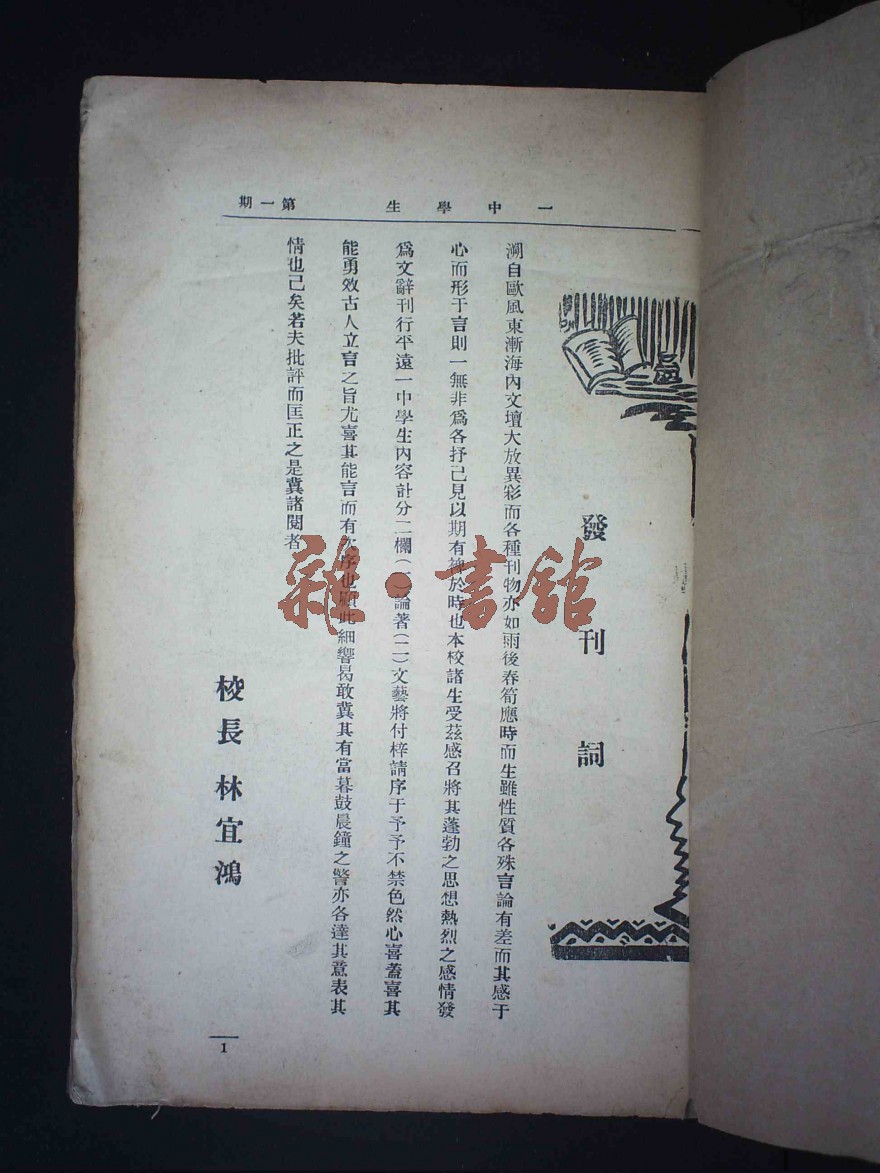 一中學生 第一期
發刊詞
溯自歐風東漸海內文壇大放異彩而各種刊物亦如雨後春筍應時而生雖性質各殊言論有差而其感于
心而形于言則一無非爲各抒己見以期有裨於時也本校諸生受茲感召將其蓬勃之思想熱烈之感情發
爲文辭刊行平遠一中學生內容計分二欄(一)論著(二)文藝將付梓請序于予予不禁色然心喜蓋喜其
能勇效古人立言之旨尤喜其能言而有次序也顧此細響曷敢冀其有當暮鼓晨鐘之警亦各達其意表其
情也已矣若夫批評而匡正之是冀諸閱者
校長 林宜鴻
1
雜·書館